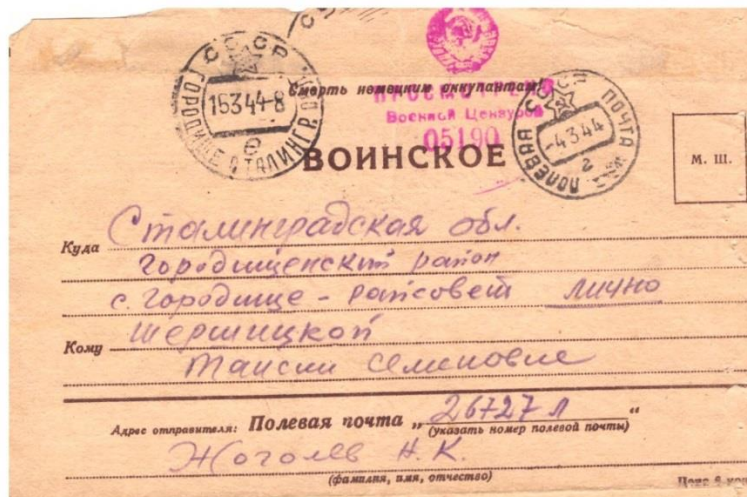 СССР
ГОРОДИЩЕ СТАЛИНГР. ОБЛ.
15344-8
Смерть немецким оккупантам!
ПРОСМОТРЕНО
Военной Цензурой
05190
СССР ПОЛЕВАЯ ПОЧТА
-4344
г
ВОИНСКОЕ
М. Ш.
Куда Сталинградская обл.
Городищенский район
с. Городище - райсовет лично
Кому Шершицкой
Таисии Семеновне
Адрес отправителя: Полевая почта „26727 Л“
(указать номер полевой почты)
Жоголев Н. К.
(фамилия, имя, отчество)
Цена 5 коп